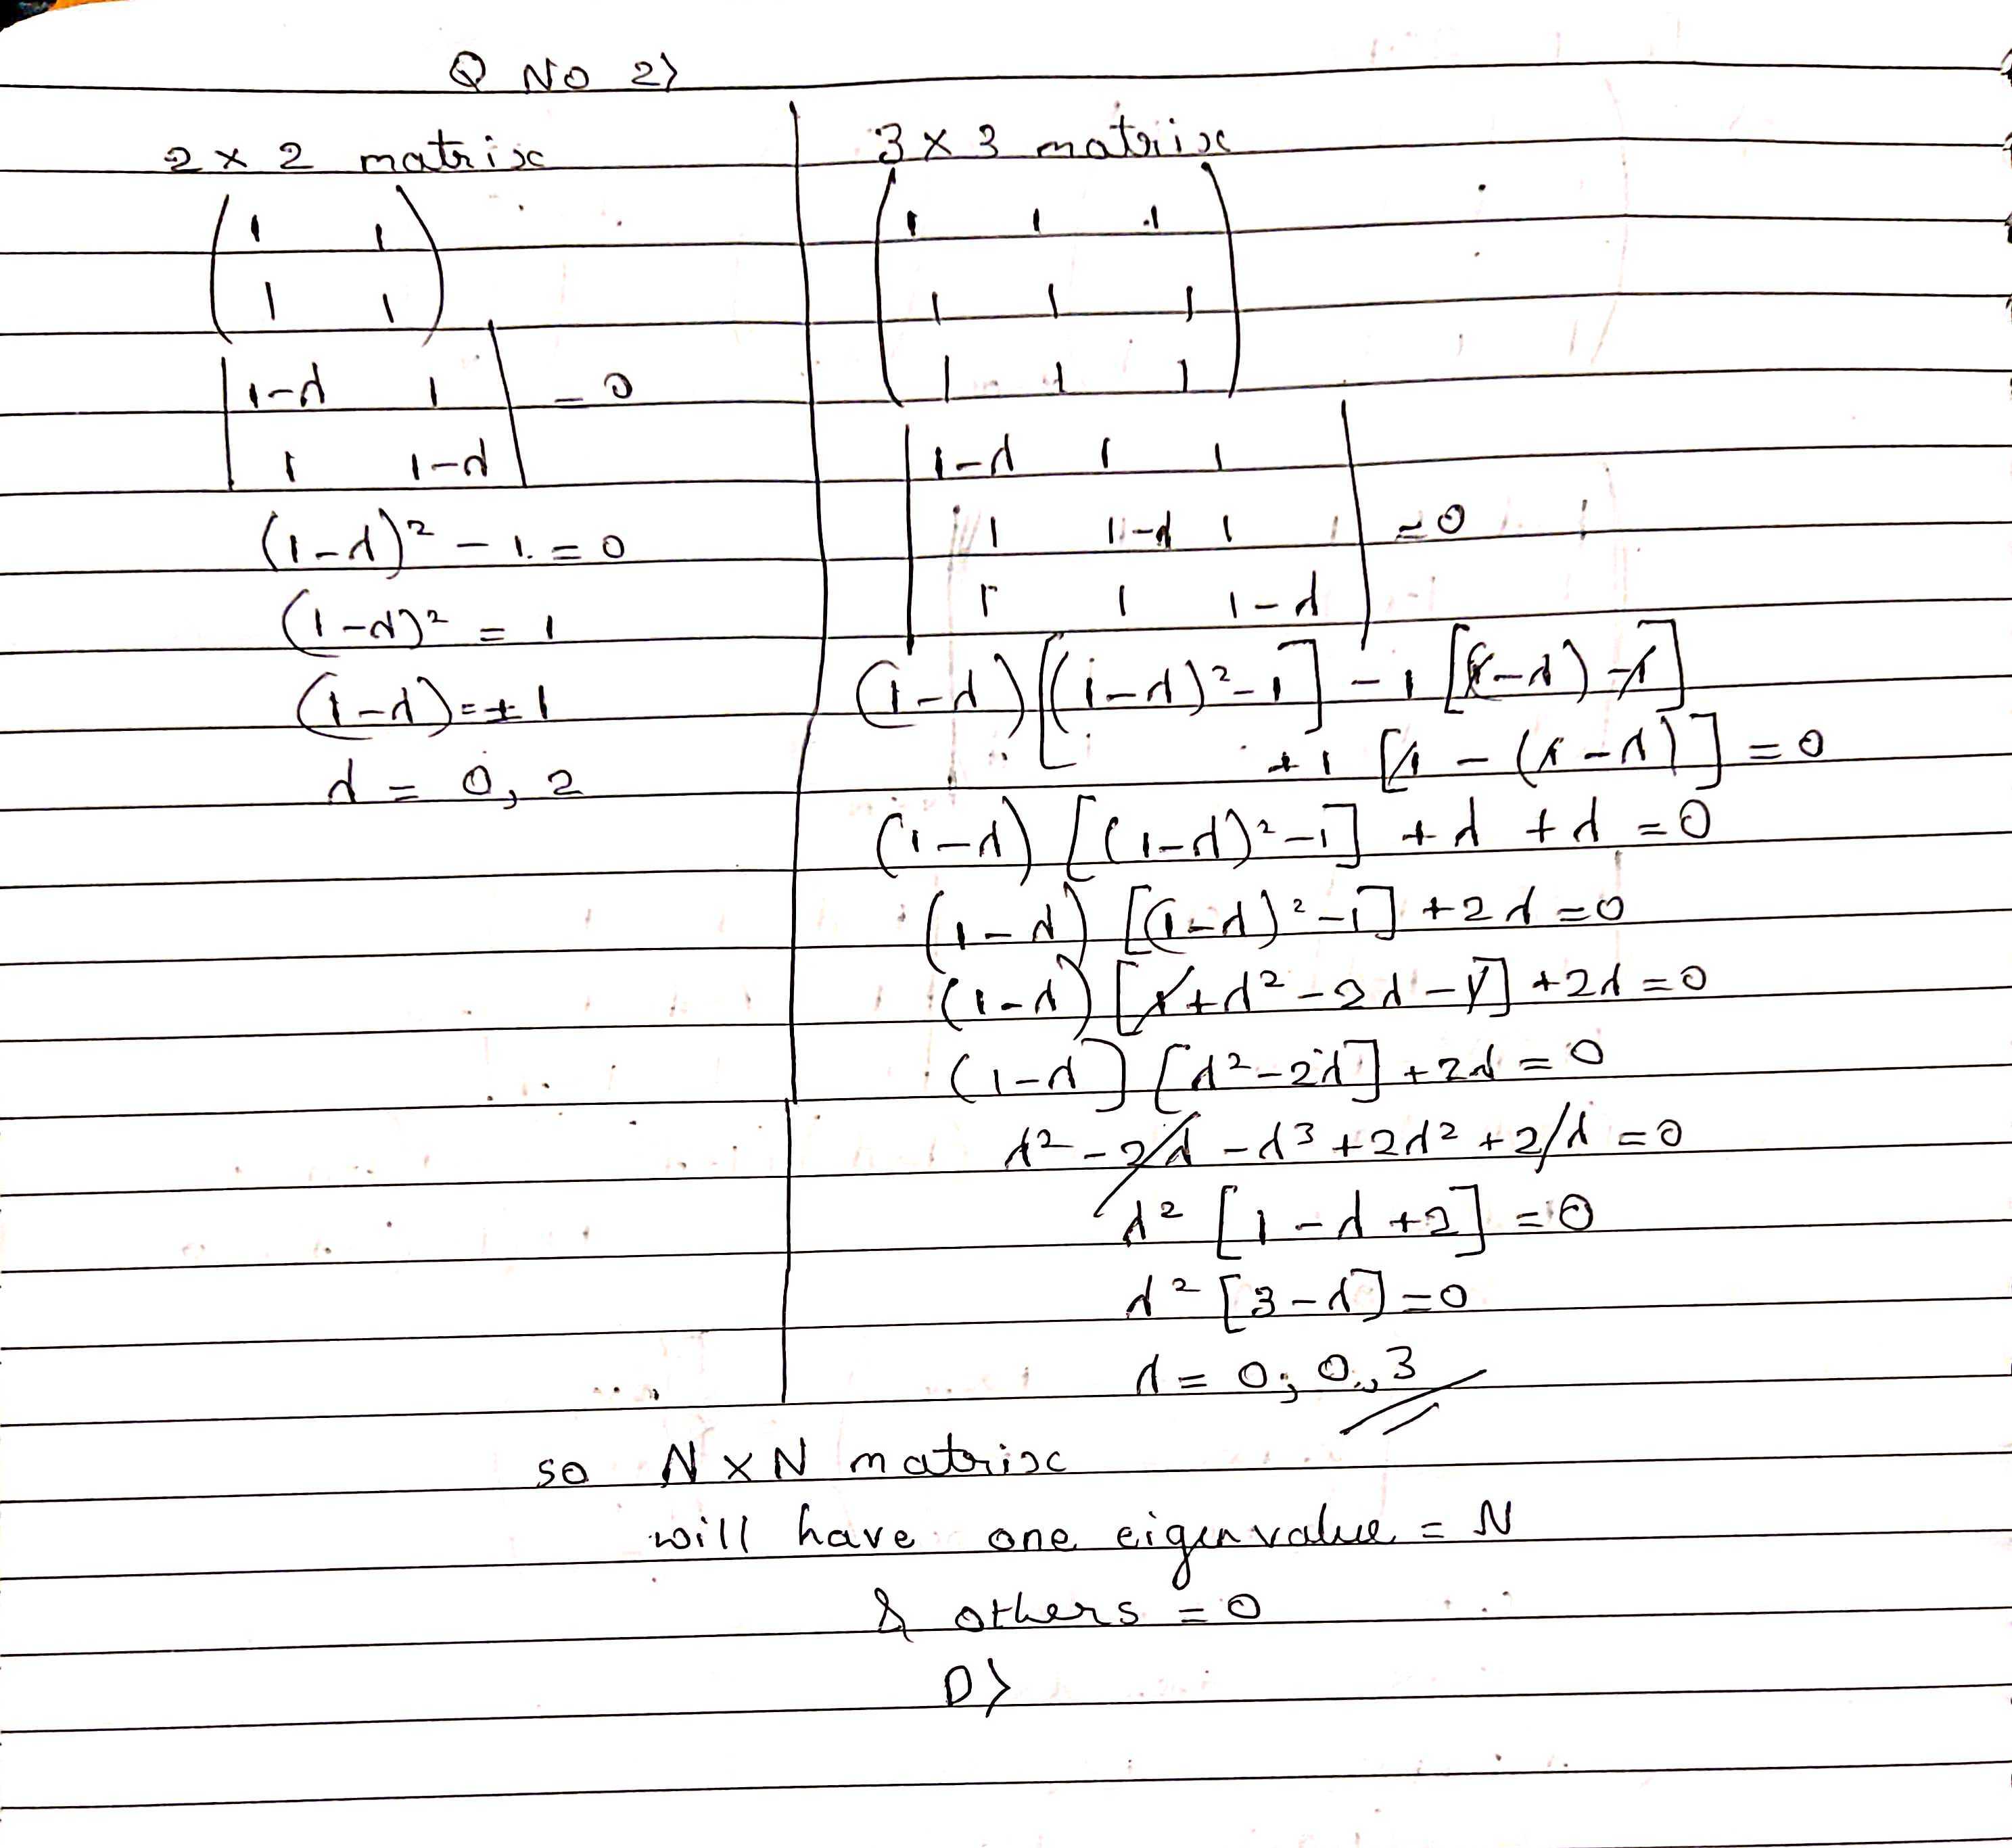 Q No 2>
2 × 2 matrix
( 1 1
1 1 )
| 1-λ 1 | = 0
| 1 1-λ |
(1-λ)² - 1 = 0
(1-λ)² = 1
(1-λ) = ± 1
λ = 0, 2
3 × 3 matrix
( 1 1 1
1 1 1
1 1 1 )
| 1-λ 1 1 |
| 1 1-λ 1 | = 0
| 1 1 1-λ |
(1-λ) [(1-λ)² - 1] - 1 [(1-λ) - 1]
+ 1 [1 - (1-λ)] = 0
(1-λ) [(1-λ)² - 1] + λ + λ = 0
(1-λ) [(1-λ)² - 1] + 2λ = 0
(1-λ) [1 + λ² - 2λ - 1] + 2λ = 0
(1-λ] [λ² - 2λ] + 2λ = 0
λ² - 2λ - λ³ + 2λ² + 2λ = 0
λ² [1 - λ + 2] = 0
λ² [3 - λ] = 0
λ = 0, 0, 3
so N × N matrix
will have one eigenvalue = N
& others = 0
D>